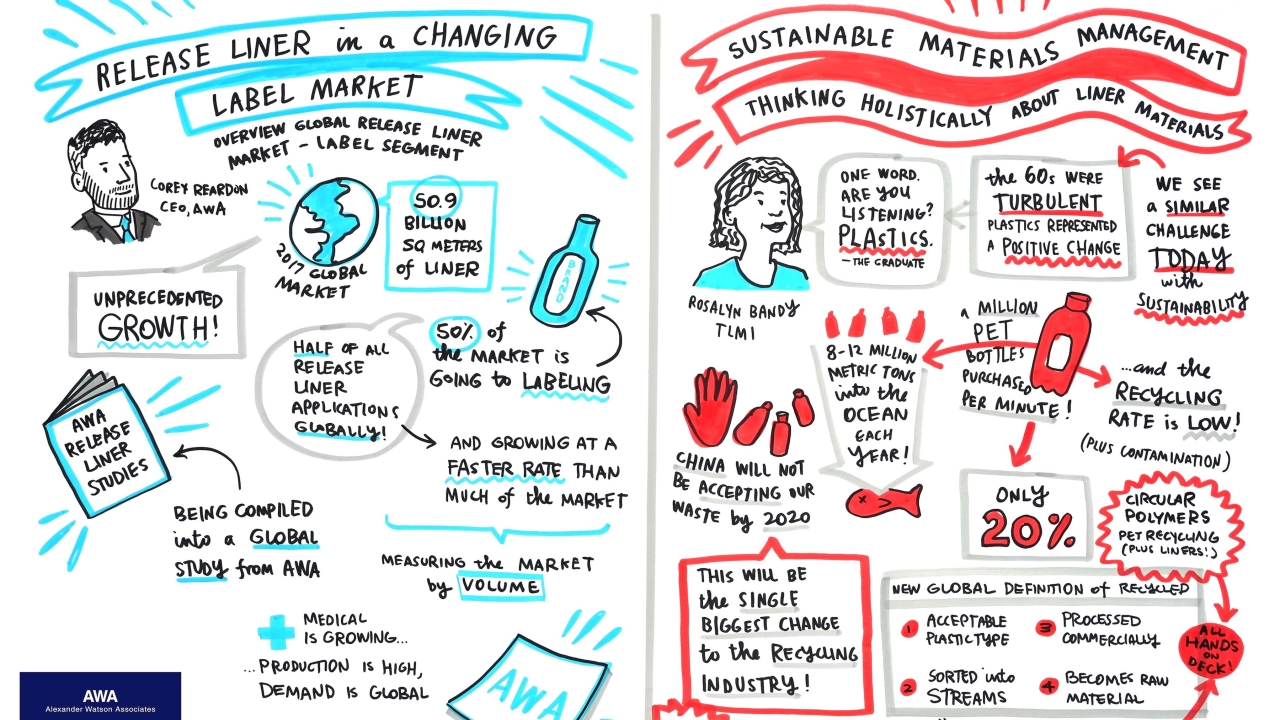 RELEASE LINER in a CHANGING
LABEL MARKET
OVERVIEW GLOBAL RELEASE LINER
MARKET - LABEL SEGMENT
COREY REARDON
CEO, AWA
2017 GLOBAL
MARKET
50.9
BILLION
SQ METERS
of LINER
BRAND
UNPRECEDENTED
GROWTH!
HALF OF ALL
RELEASE
LINER
APPLICATIONS
GLOBALLY!
50% of
the MARKET IS
GOING to LABELING
AND GROWING AT A
FASTER RATE THAN
MUCH of the MARKET
AWA
RELEASE
LINER
STUDIES
BEING COMPILED
into a GLOBAL
STUDY from AWA
MEASURING the MARKET
by VOLUME
MEDICAL
IS GROWING...
...PRODUCTION IS HIGH,
DEMAND IS GLOBAL
AWA
AWA
Alexander Watson Associates
SUSTAINABLE MATERIALS MANAGEMENT
THINKING HOLISTICALLY ABOUT LINER MATERIALS
ROSALYN BANDY
TLMI
ONE WORD.
ARE YOU
LISTENING?
PLASTICS.
- THE GRADUATE
the 60s WERE
TURBULENT
PLASTICS REPRESENTED
A POSITIVE CHANGE
WE SEE
a SIMILAR
CHALLENGE
TODAY
with
SUSTAINABILITY
a MILLION
PET
BOTTLES
PURCHASED
PER MINUTE!
8-12 MILLION
METRIC TONS
into the
OCEAN
EACH
YEAR!
...and the
RECYCLING
RATE is LOW!
(PLUS CONTAMINATION)
CHINA WILL NOT
BE ACCEPTING OUR
WASTE by 2020
THIS WILL BE
the SINGLE
BIGGEST CHANGE
to the RECYCLING
INDUSTRY!
ONLY
20%
CIRCULAR
POLYMERS
PET RECYCLING
(PLUS LINERS!)
NEW GLOBAL DEFINITION of RECYCLED
1 ACCEPTABLE
PLASTIC TYPE
2 SORTED into
STREAMS
3 PROCESSED
COMMERCIALLY
4 BECOMES RAW
MATERIAL
ALL
HANDS
ON
DECK!